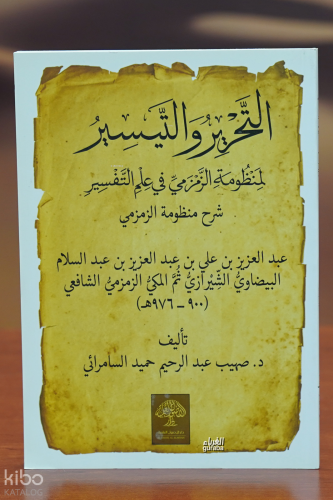 التَّحْرِيرُ وَالتَّيْسِيرُ
لِمَنْظُومَةِ الزَّمْزَمِيِّ فِي عِلْمِ التَّفْسِيرِ
شرح منظومة الزمزمي
عبد العزيز بن علي بن عبد العزيز بن عبد السلام
البيضاويُّ الشِّيرازيُّ ثُمَّ المكيُّ الزمزميُّ الشافعي
(٩٠٠ – ٩٧٦هـ)
تأليف
د. صهيب عبد الرحيم حميد السامرائي
الغرباء
kibo
KATALOG